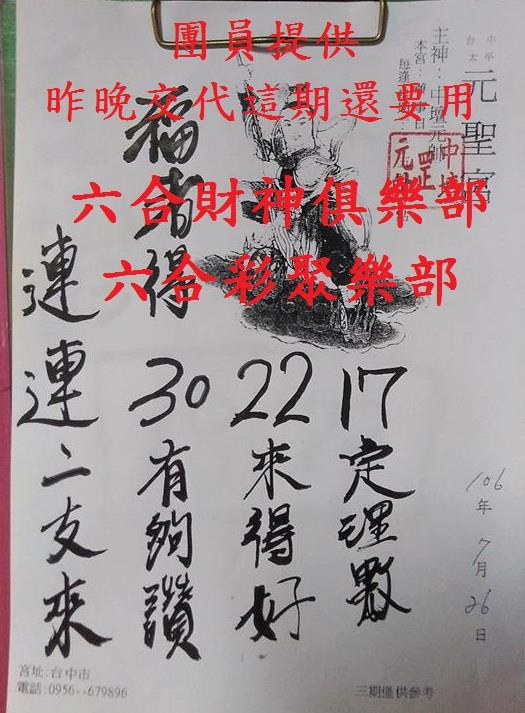 團員提供
昨晚交代這期還要用
六合財神俱樂部
六合彩聚樂部
台中
元聖宮
主神：中壇元帥
17定理數
22來得好
福者得
30有夠讚
連連二支來
106年7月26日
宮址:台中市
電話:0956--679896
三期僅供參考